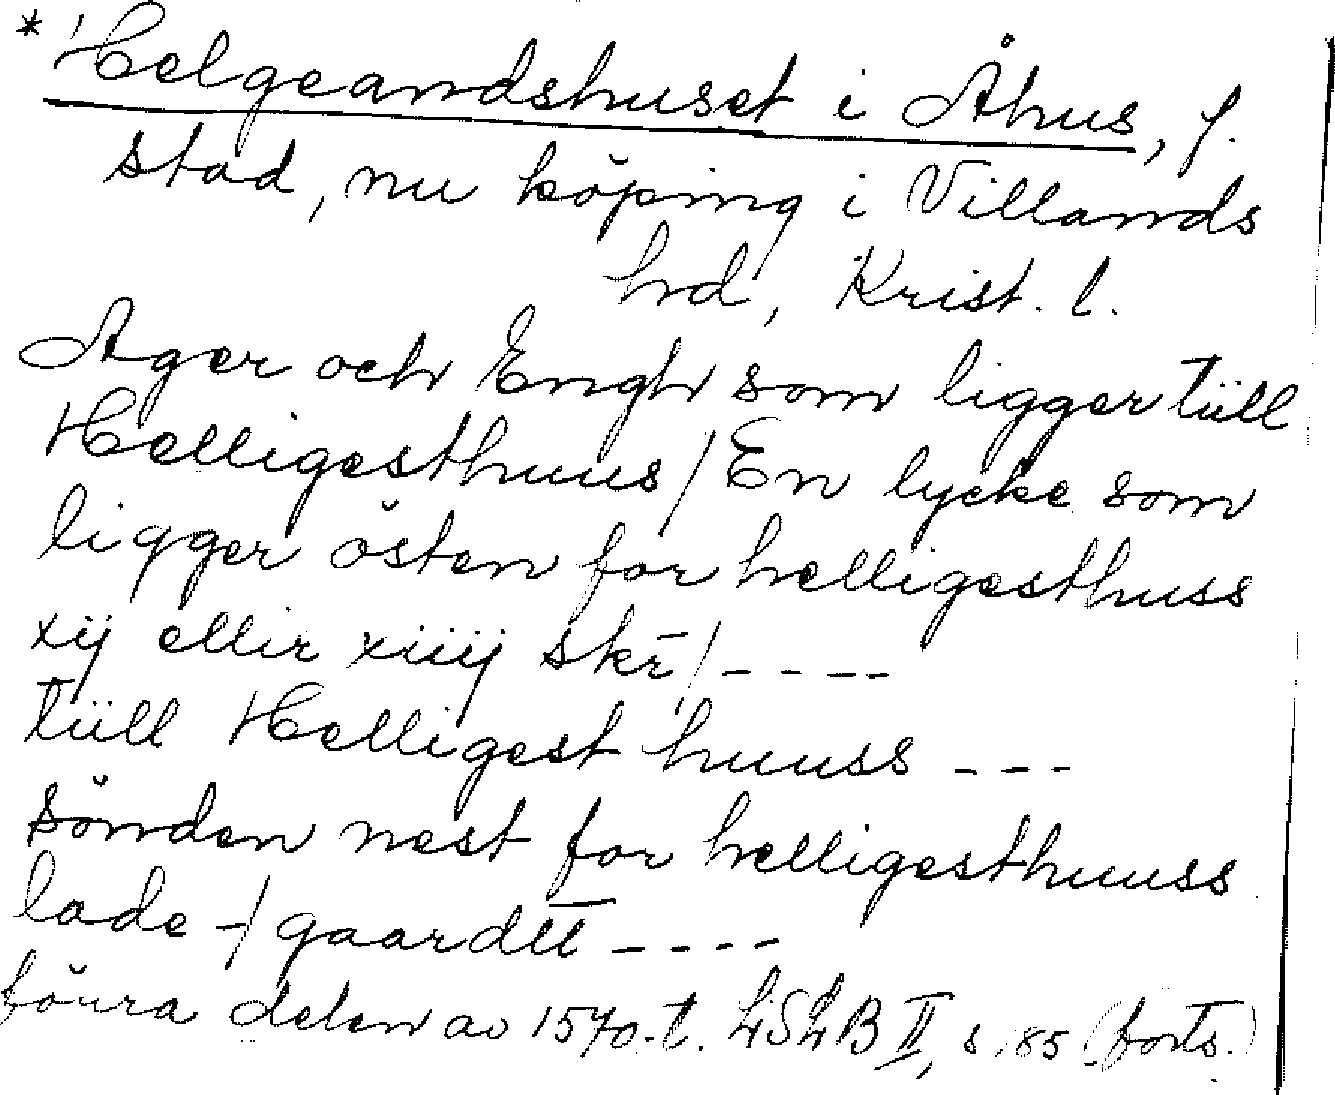 * Helgeandshuset i Åhus, f.
stad, nu köping i Villands
hd, Krist. l.
Ager och Engh som ligger tiill
Helligesthuus / En lycke som
ligger östen for helligesthuss
xij ellir xiiij skr̄ / - - - -
tiill Helligest huuss - - -
sönden nest for helligesthuuss
lade -/ gaardtt - - - -
förra delen av 1570-t. LSLB II, s. 85 (forts.)